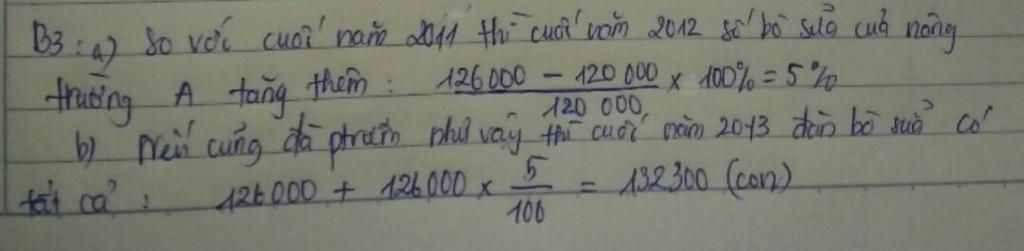 B3: a) So với cuối năm 2011 thì cuối năm 2012 số bò sữa của nông
trường A tăng thêm: \frac{126000 - 120 000}{120 000} × 100% = 5%
b) Nếu cũng đà phát như vậy thì cuối năm 2013 đàn bò sữa có
tất cả: 126000 + 126000 × \frac{5}{100} = 132300 (con)